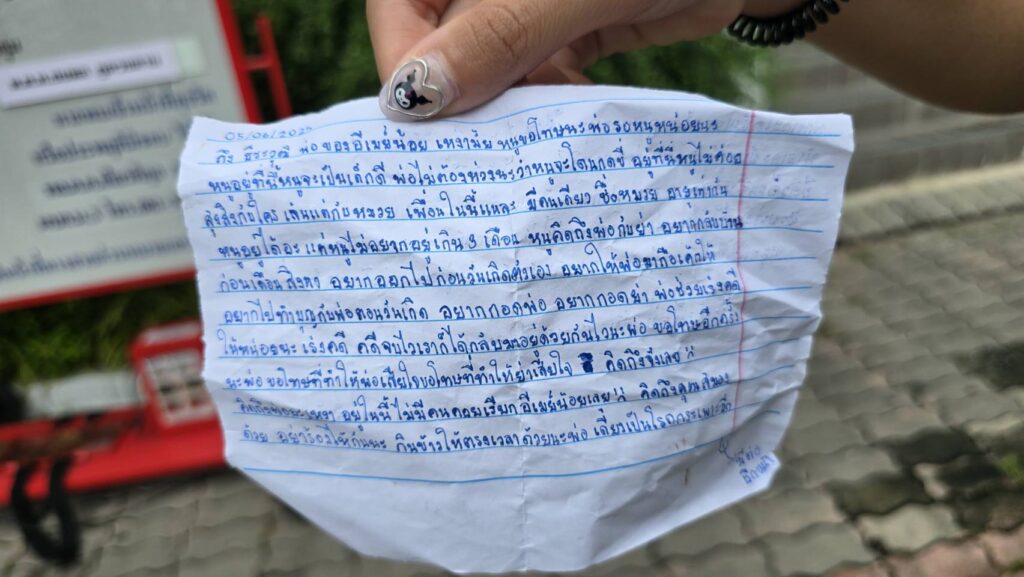 05/06/2022
ถึง ธีระวุฒิ พ่อของอีเมย์น้อย เหงามั้ย หนูขอโทษนะพ่อรอหนูหน่อยนะ
หนูอยู่ที่นี้หนูจะเป็นเด็กดี พ่อไม่ต้องห่วงนะว่าหนูจะโดนกดขี่ อยู่ที่นี่หนูไม่ค่อย
สุงสิงกับใคร เล่นแต่กับหมวย เพื่อนในนี้แหละ มีคนเดียว ชื่อหมวย อายุเท่ากัน
หนูอยู่ได้อะ แค่หนูไม่อยากอยู่เกิน 3 เดือน หนูคิดถึงพ่อกับย่า อยากกลับบ้าน
ก่อนเดือนสิงหา อยากออกไปก่อนวันเกิดตัวเอง อยากให้พ่อมาถือเค้กให้
อยากไปทำบุญกับพ่อตอนวันเกิด อยากกอดพ่อ อยากกอดย่า พ่อช่วยเร่งคดี
ให้หน่อยนะ เร่งคดี คดีจบไวเราก็ได้กลับมาอยู่ด้วยกันไวนะพ่อ ขอโทษอีกครั้ง
นะพ่อ ขอโทษที่ทำให้พ่อเสียใจขอโทษที่ทำให้ย่าเสียใจ คิดถึงจังเลย ๆ
อยู่ในนี้ไม่มีคนคอยเรียก อีเมย์น้อยเลย ๆ คิดถึงคุณ
ด้วย อย่าร้องไห้กันนะ กินข้าวให้ตรงเวลาด้วยนะพ่อ เดี๋ยวเป็นโรคกระเพาะ